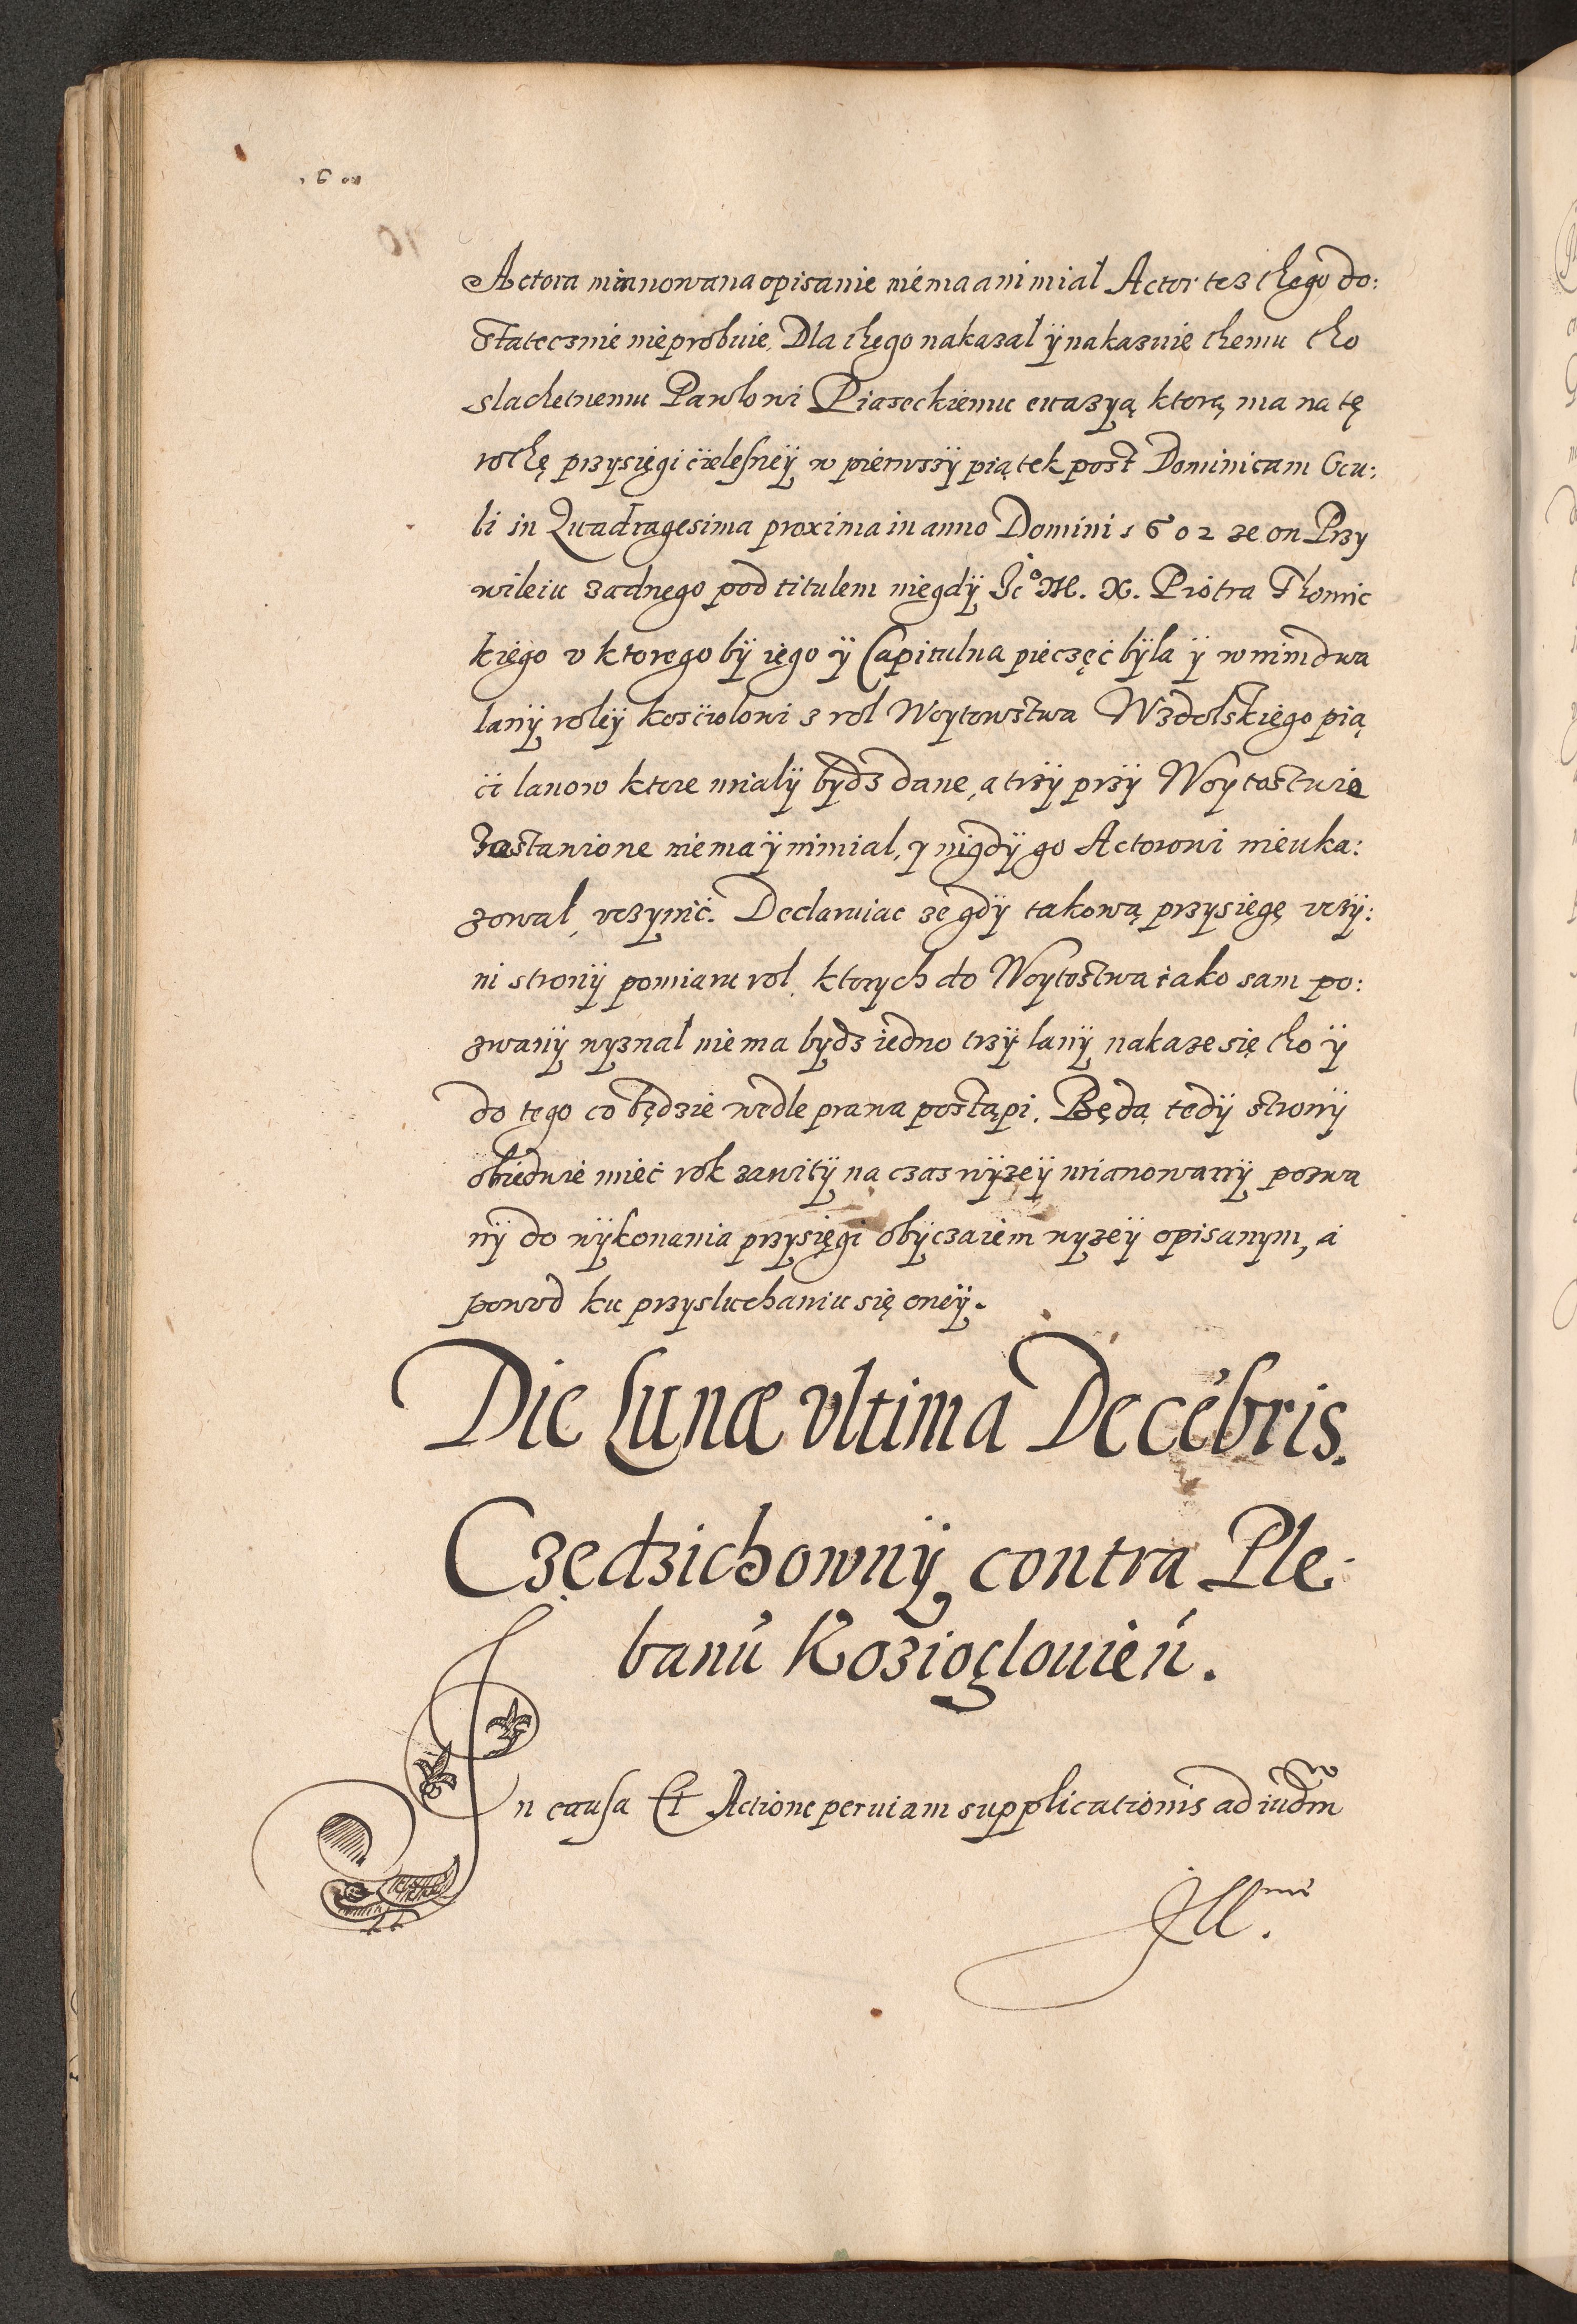 Actora mianowana opisanie niema ani miał Actor tesz thego do:
statecznie nieprobuie, Dla thego nakazał ÿ nakazuie themu tho
slachetnemu Pawłowi Piaseckiemu ewazyą ktorą ma na tę
rothę przysięgi cielesneÿ w pierwszÿ piątek post Dominicam Ocu:
li in Quadragesima proxima in anno Domini 1602 ze on Przy
wileiu zadnego pod titulem niegdÿ Jº M. X. Piotra Thomic
kiego v ktorego bÿ iego ÿ Capitulna pieczęć bÿla ÿ w nim dwa
lanÿ roleÿ kościołowi z rol Woytowstwa Wzdolskiego pią
ći lanow ktore mialÿ bydz dane, a trzÿ przÿ Woytostwie
Zostawione niema ÿ nimial, y nigdÿ go Actorowi nieuka:
zował, vczynić. Declaruiac ze gdÿ takową przysięgę vczÿ:
ni stronÿ pomiaru rol, ktorych do Woytostwa iako sam po:
zwanÿ wyznał niema bydz iedno trzÿ lanÿ nakaze się tho ÿ
do tego co będzie wedle prawa postąpi. Będą tedÿ stronÿ
obiedwie mieć rok zawitÿ na czas wÿzeÿ mianowanÿ pozwa
nÿ do wÿkonania przysięgi obÿczaiem wyzeÿ opisanym, a
powod ku przysluchaniu się oneÿ.
Die Lunæ vltima Decẽbris.
Czędzichownÿ contra Ple:
banũ Kozioglouień.
In causa Et Actione per viam supplicationis ad iudm̃
Illmi.